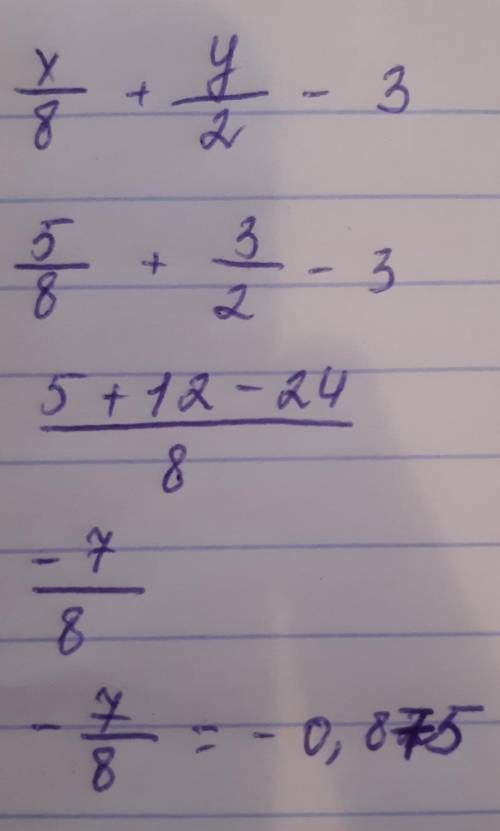 x/8 + y/2 - 3
5/8 + 3/2 - 3
5 + 12 - 24 / 8
-7/8
- 7/8 = - 0,875